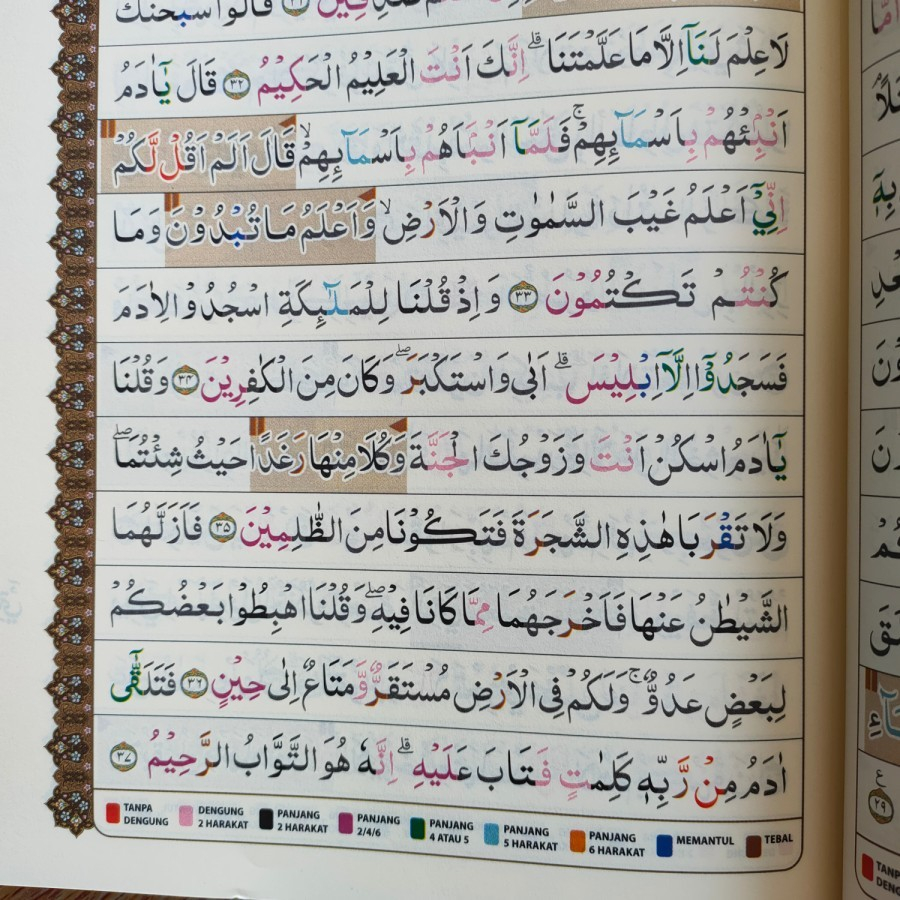 قَالُوْا سُبْحٰنَكَ
لَا عِلْمَ لَنَآ اِلَّا مَا عَلَّمْتَنَا ۗاِنَّكَ اَنْتَ الْعَلِيْمُ الْحَكِيْمُ ٣٢ قَالَ يٰٓاٰدَمُ
اَنْۢبِئْهُمْ بِاَسْمَاۤىِٕهِمْ ۚ فَلَمَّآ اَنْۢبَاَهُمْ بِاَسْمَاۤىِٕهِمْۙ قَالَ اَلَمْ اَقُلْ لَّكُمْ
اِنِّيْٓ اَعْلَمُ غَيْبَ السَّمٰوٰتِ وَالْاَرْضِۙ وَاَعْلَمُ مَا تُبْدُوْنَ وَمَا
كُنْتُمْ تَكْتُمُوْنَ ٣٣ وَاِذْ قُلْنَا لِلْمَلٰۤىِٕكَةِ اسْجُدُوْا لِاٰدَمَ
فَسَجَدُوْٓا اِلَّآ اِبْلِيْسَۗ اَبٰى وَاسْتَكْبَرَۖ وَكَانَ مِنَ الْكٰفِرِيْنَ ٣٤ وَقُلْنَا
يٰٓاٰدَمُ اسْكُنْ اَنْتَ وَزَوْجُكَ الْجَنَّةَ وَكُلَا مِنْهَا رَغَدًا حَيْثُ شِئْتُمَاۖ
وَلَا تَقْرَبَا هٰذِهِ الشَّجَرَةَ فَتَكُوْنَا مِنَ الظّٰلِمِيْنَ ٣٥ فَاَزَلَّهُمَا
الشَّيْطٰنُ عَنْهَا فَاَخْرَجَهُمَا مِمَّا كَانَا فِيْهِۖ وَقُلْنَا اهْبِطُوْا بَعْضُكُمْ
لِبَعْضٍ عَدُوٌّ ۚ وَلَكُمْ فِى الْاَرْضِ مُسْتَقَرٌّ وَّمَتَاعٌ اِلٰى حِيْنٍ ٣٦ فَتَلَقّٰٓى
اٰدَمُ مِنْ رَّبِّهٖ كَلِمٰتٍ فَتَابَ عَلَيْهِ ۗ اِنَّهٗ هُوَ التَّوَّابُ الرَّحِيْمُ ٣٧
TANPA DENGUNG
DENGUNG 2 HARAKAT
PANJANG 2 HARAKAT
PANJANG 2/4/6
PANJANG 4 ATAU 5
PANJANG 5 HARAKAT
PANJANG 6 HARAKAT
MEMANTUL
TEBAL